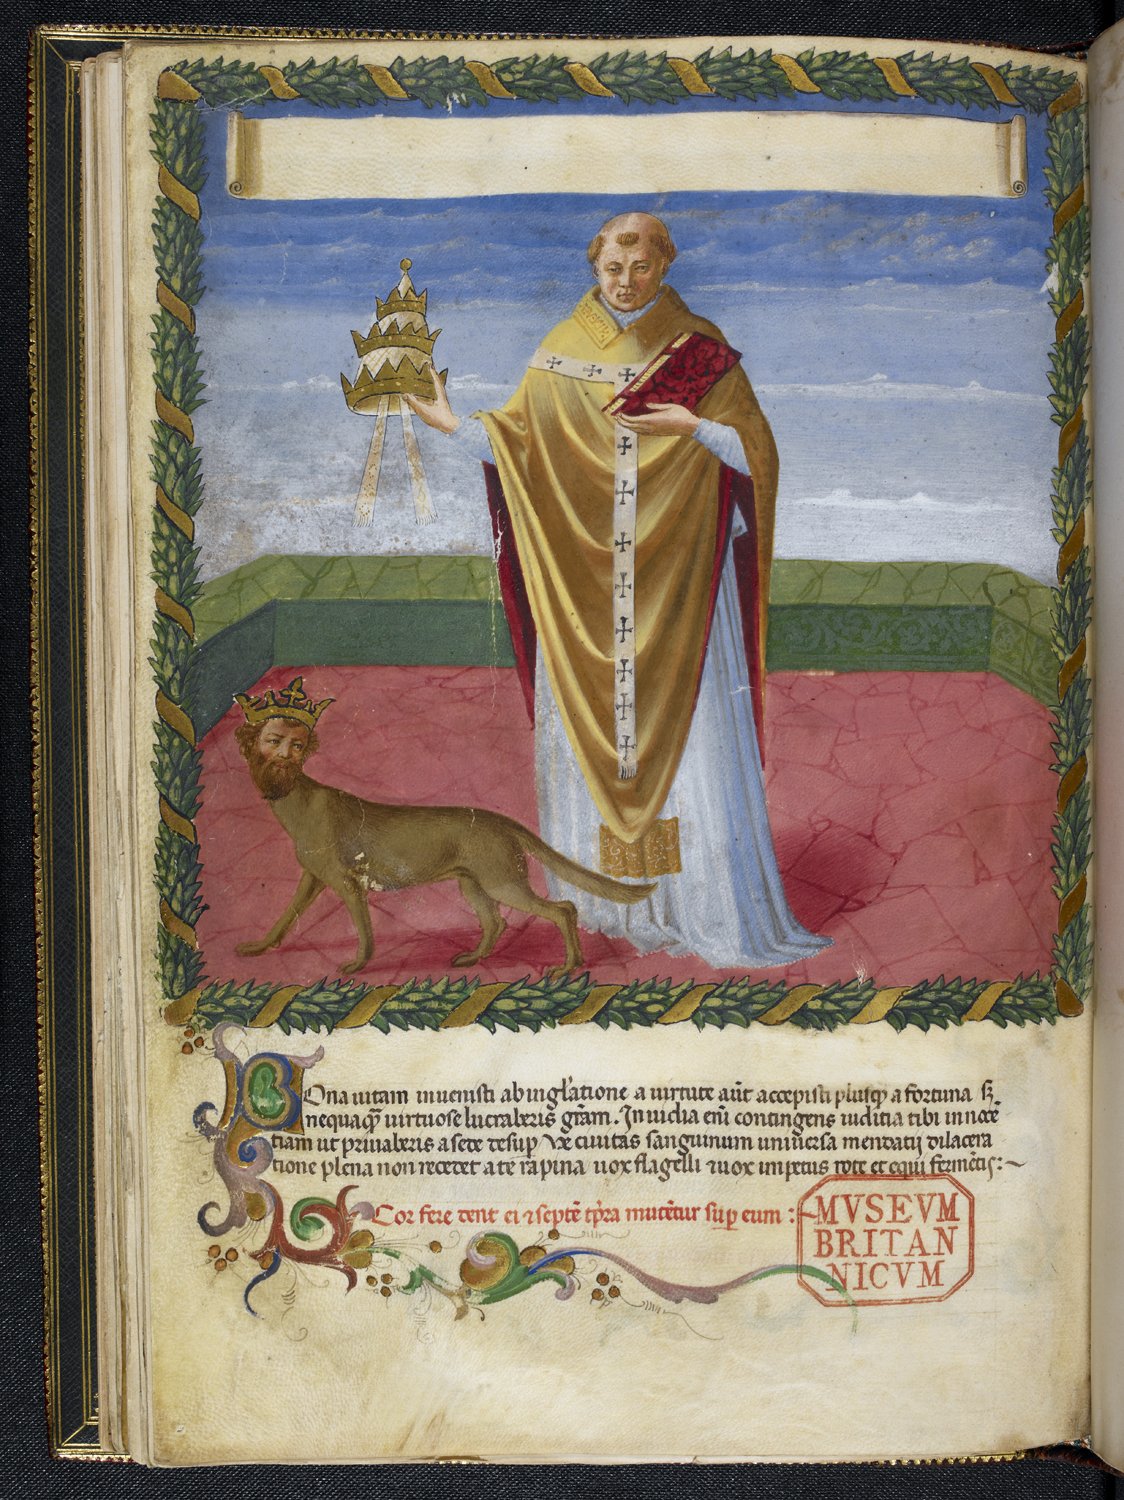 Bona uitam inuenisti ab ingl'atione a uirtute aūt accepisti plusq̄ a fortuna sʒ
nequaq̄ʒ uirtuose lucraberis gr̄am. Inuidia em̄ contingens iuditia tibi in nocē
tiam ut priuaberis a sede desup Ve ciuitas sanguinum uniuersa mendatij dilacera
tione plena non recedet a te rapina uox flagelli ⁊ uox impetus rote et equi fermētis:~
Cor fere dent ei ⁊ septē tp̄ra mutētur sup̲ eum :~
MVSEVM
BRITAN
NICVM